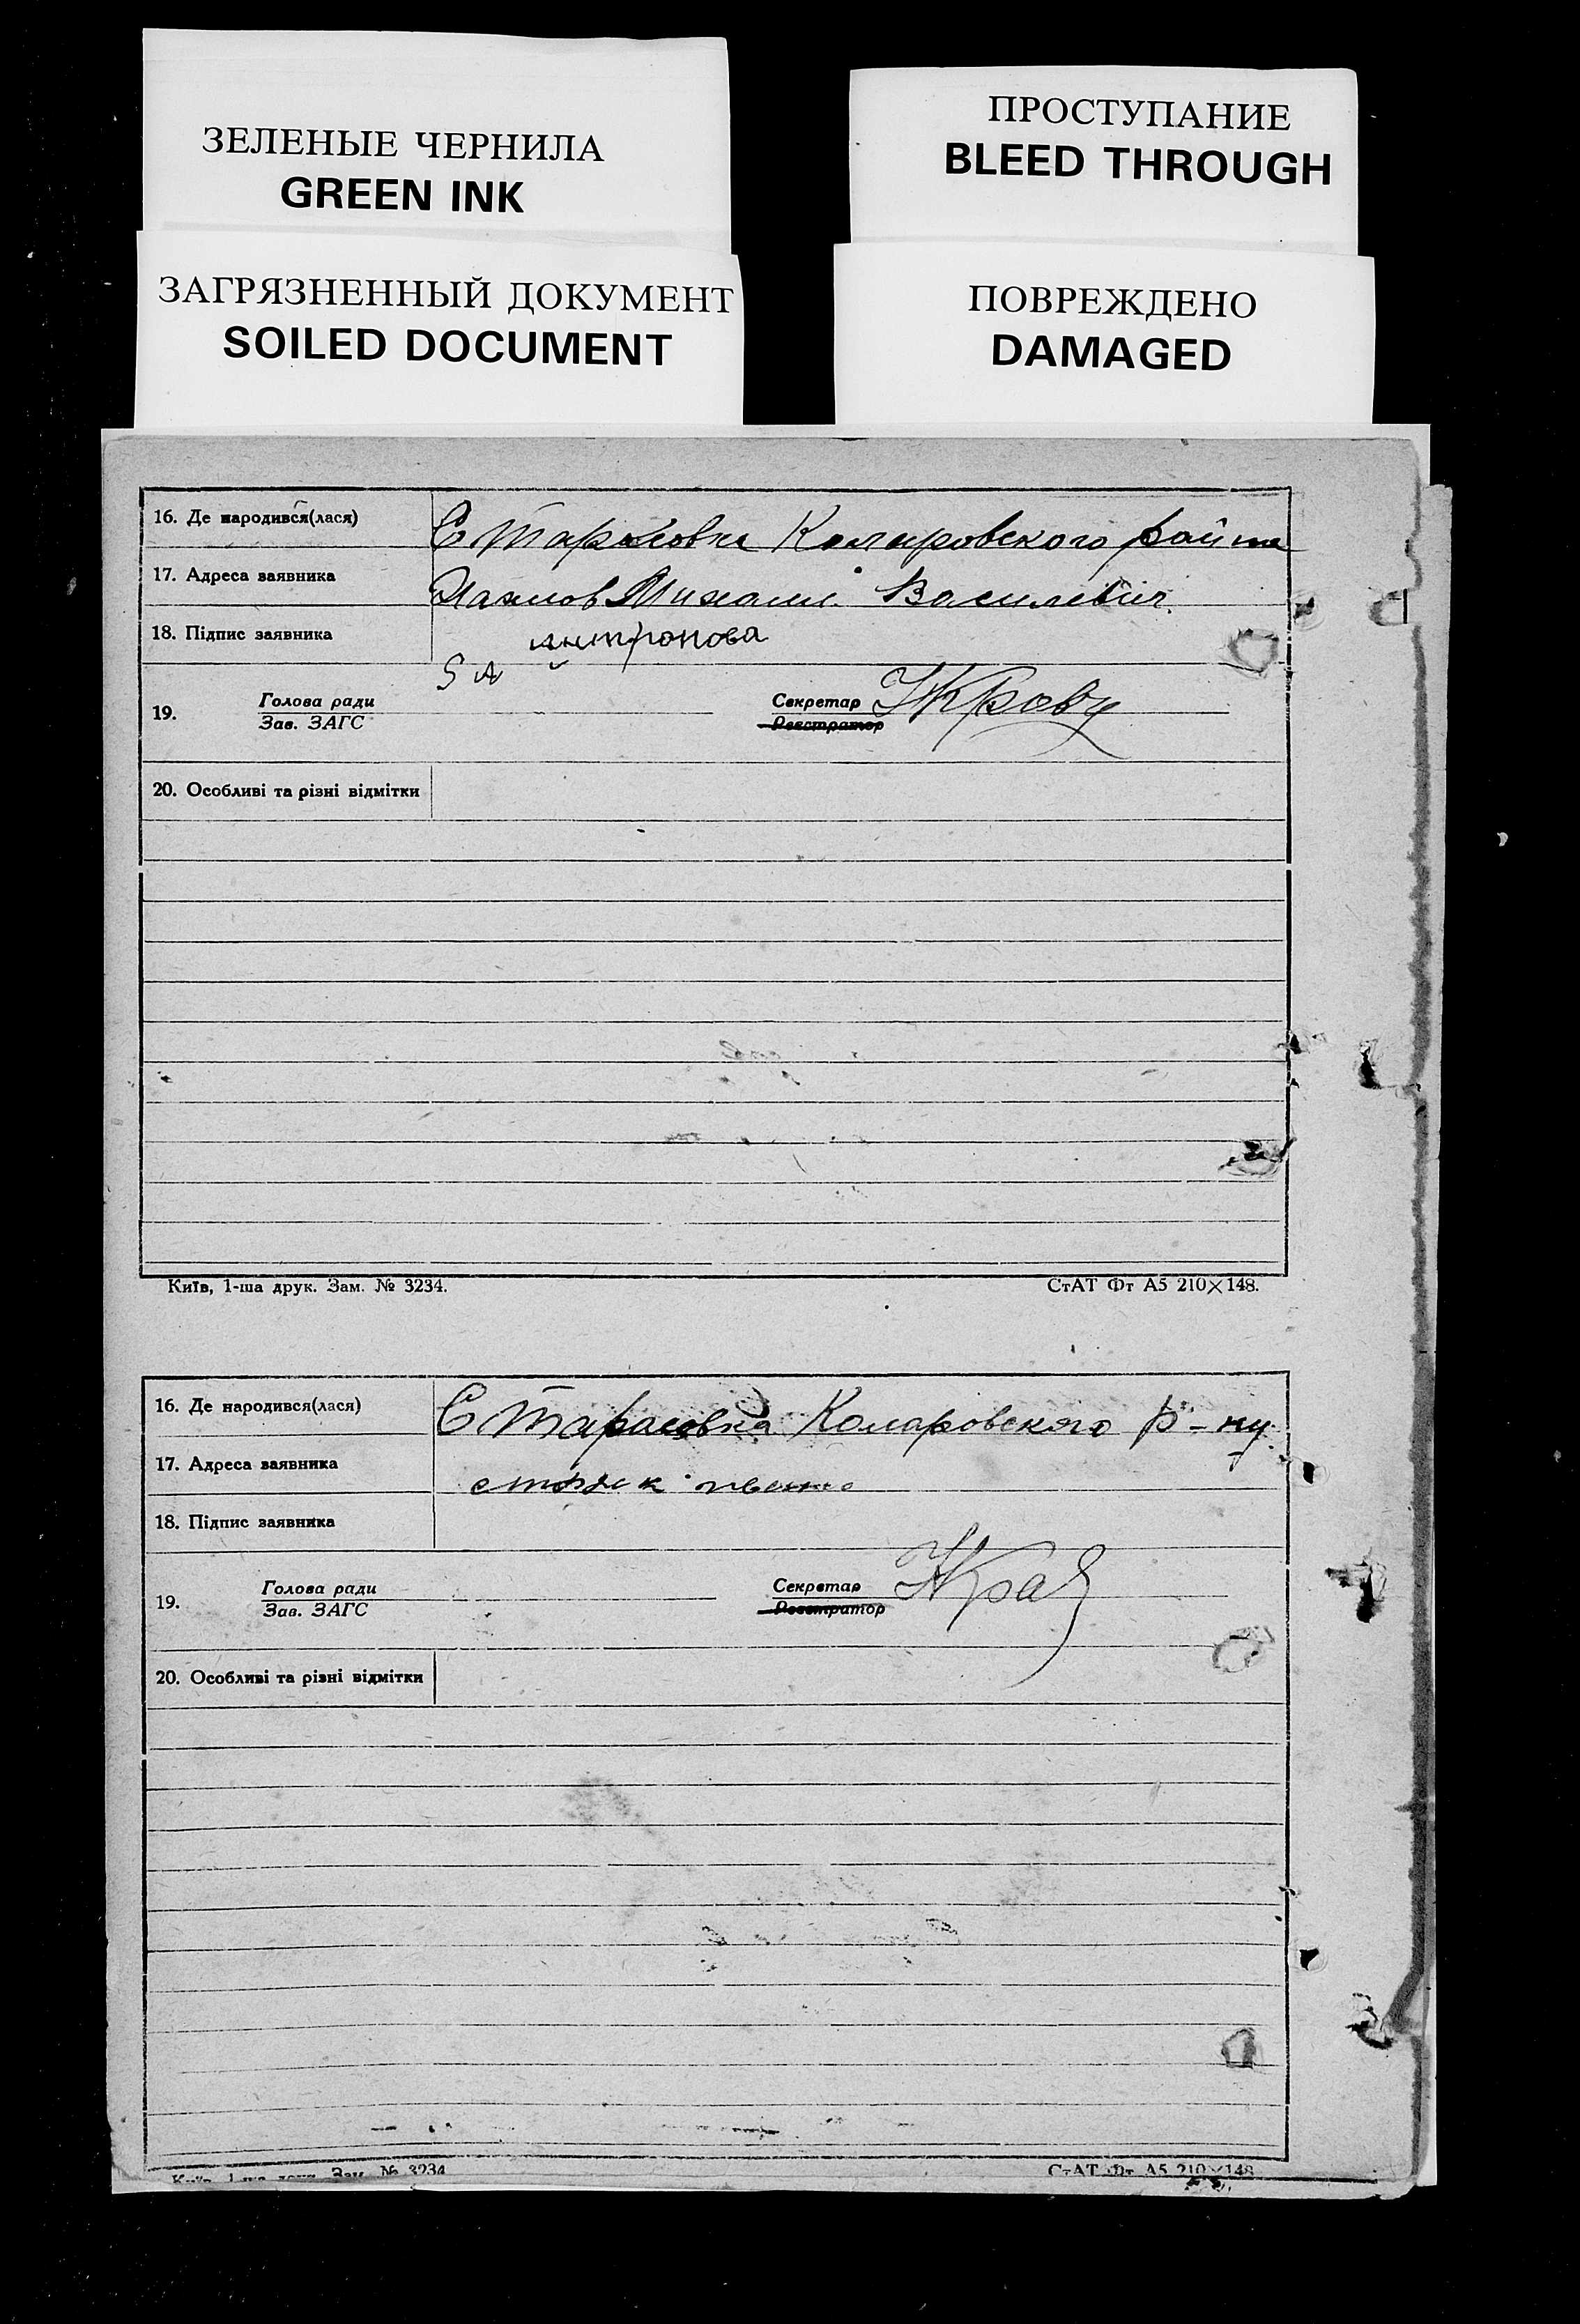 ЗЕЛЕНЫЕ ЧЕРНИЛА
GREEN INK
ПРОСТУПАНИЕ
BLEED THROUGH
ЗАГРЯЗНЕННЫЙ ДОКУМЕНТ
SOILED DOCUMENT
ПОВРЕЖДЕНО
DAMAGED
16. Де народився(лася) С Тарасовка Комаровского
17. Адреса заявника Михаил Василевич
18. Підпис заявника
19. Голова ради Секретар
Зав. ЗАГС Реєстратор
20. Особливі та різні відмітки
Київ, 1-ша друк. Зам. № 3234. СтАТ Фт А5 210×148.
16. Де народився(лася) С Тарасовка Комаровского р-ну
17. Адреса заявника
18. Підпис заявника
19. Голова ради Секретар
Зав. ЗАГС Реєстратор
20. Особливі та різні відмітки
Київ, 1-ша друк. Зам. № 3234 СтАТ Фт А5 210×148